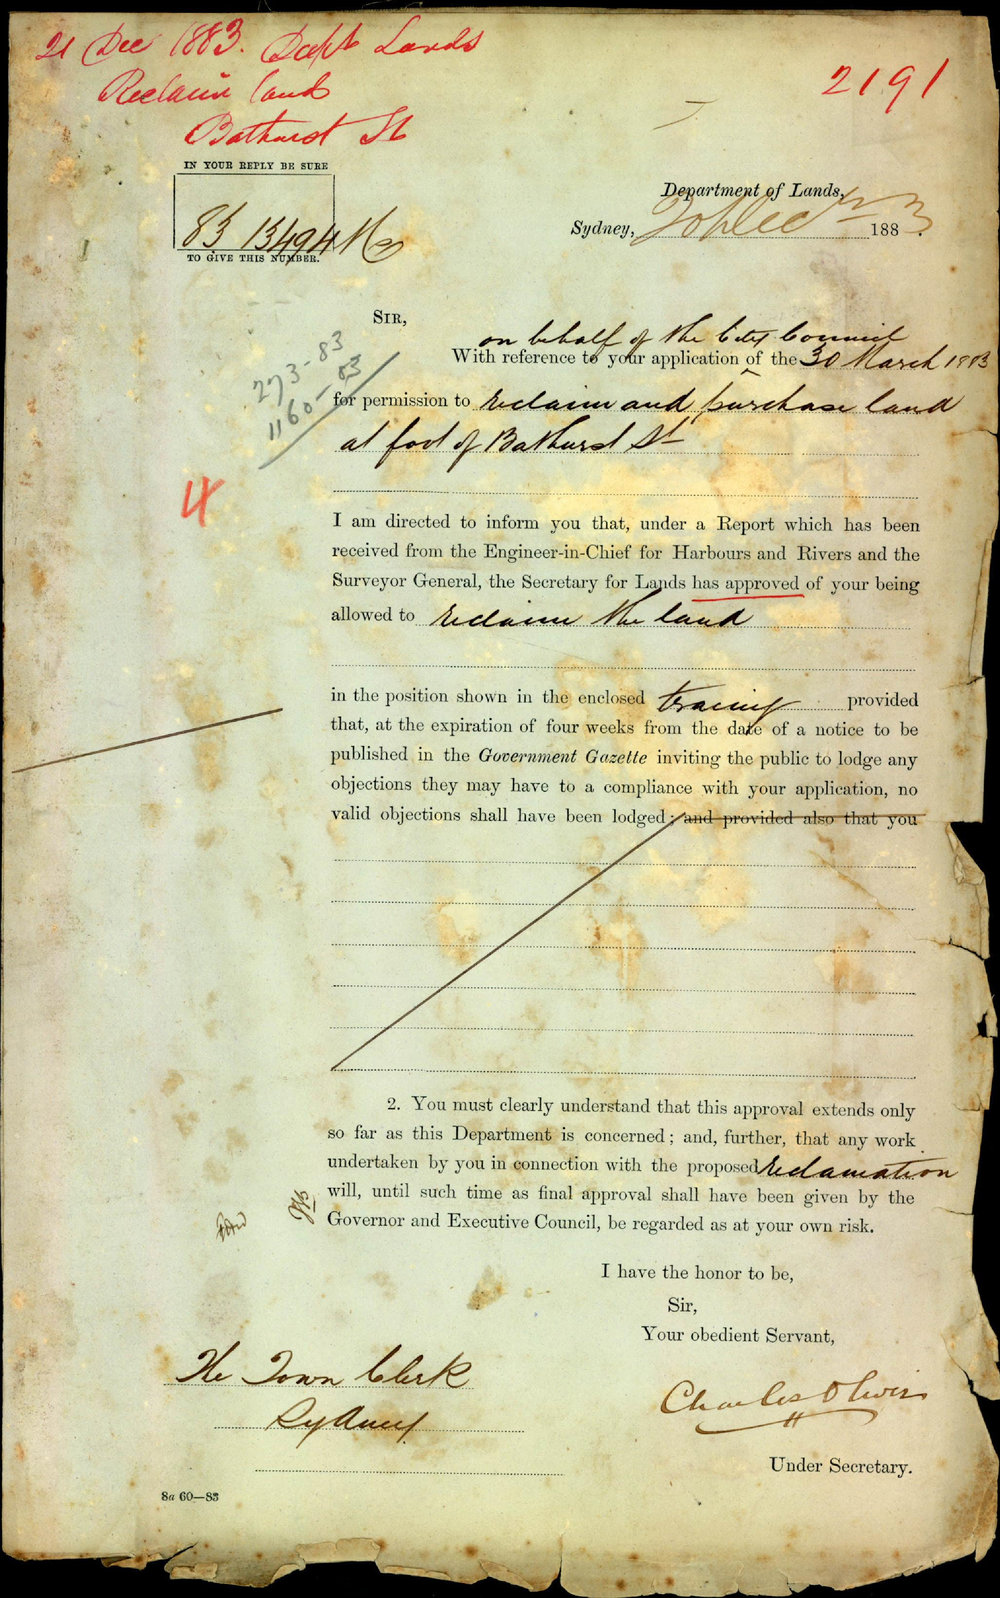 21 Dec 1883. Dept Lands
Reclaim land
Bathurst St
2191
IN YOUR REPLY BE SURE
83 13494 Ms
TO GIVE THIS NUMBER.
Department of Lands,
Sydney, 20th Dec 1883.
SIR,
on behalf of the City Council
With reference to your application of the 30 March 1883
273-83
1160-83
for permission to reclaim and purchase land
at foot of Bathurst St
4
I am directed to inform you that, under a Report which has been
received from the Engineer-in-Chief for Harbours and Rivers and the
Surveyor General, the Secretary for Lands has approved of your being
allowed to reclaim the land
in the position shown in the enclosed tracing provided
that, at the expiration of four weeks from the date of a notice to be
published in the Government Gazette inviting the public to lodge any
objections they may have to a compliance with your application, no
valid objections shall have been lodged; and provided also that you
2. You must clearly understand that this approval extends only
so far as this Department is concerned; and, further, that any work
undertaken by you in connection with the proposed reclamation
will, until such time as final approval shall have been given by the
Governor and Executive Council, be regarded as at your own risk.
I have the honor to be,
Sir,
Your obedient Servant,
The Town Clerk
Sydney
Charles Oliver
Under Secretary.
8a 60—83